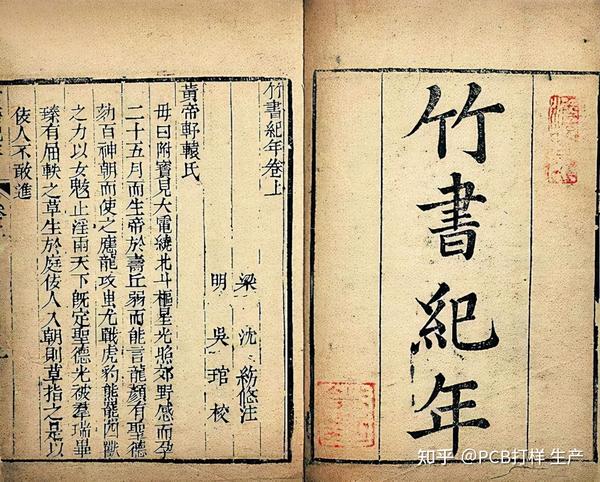 竹書紀年
竹書紀年卷上
梁 沈 約附注
明 吳 琯 校
黃帝軒轅氏
母曰附寶見大電繞北斗樞星光照郊野感而孕
二十五月而生帝於壽丘弱而能言龍顏有聖德
劾百神朝而使之應龍攻蚩尤戰虎豹熊羆四獸
之力以女魃止淫雨天下既定聖德光被羣瑞畢
臻有屈軼之草生於庭佞人入朝則草指之是以
佞人不敢進
知乎 @PCB打样 生产